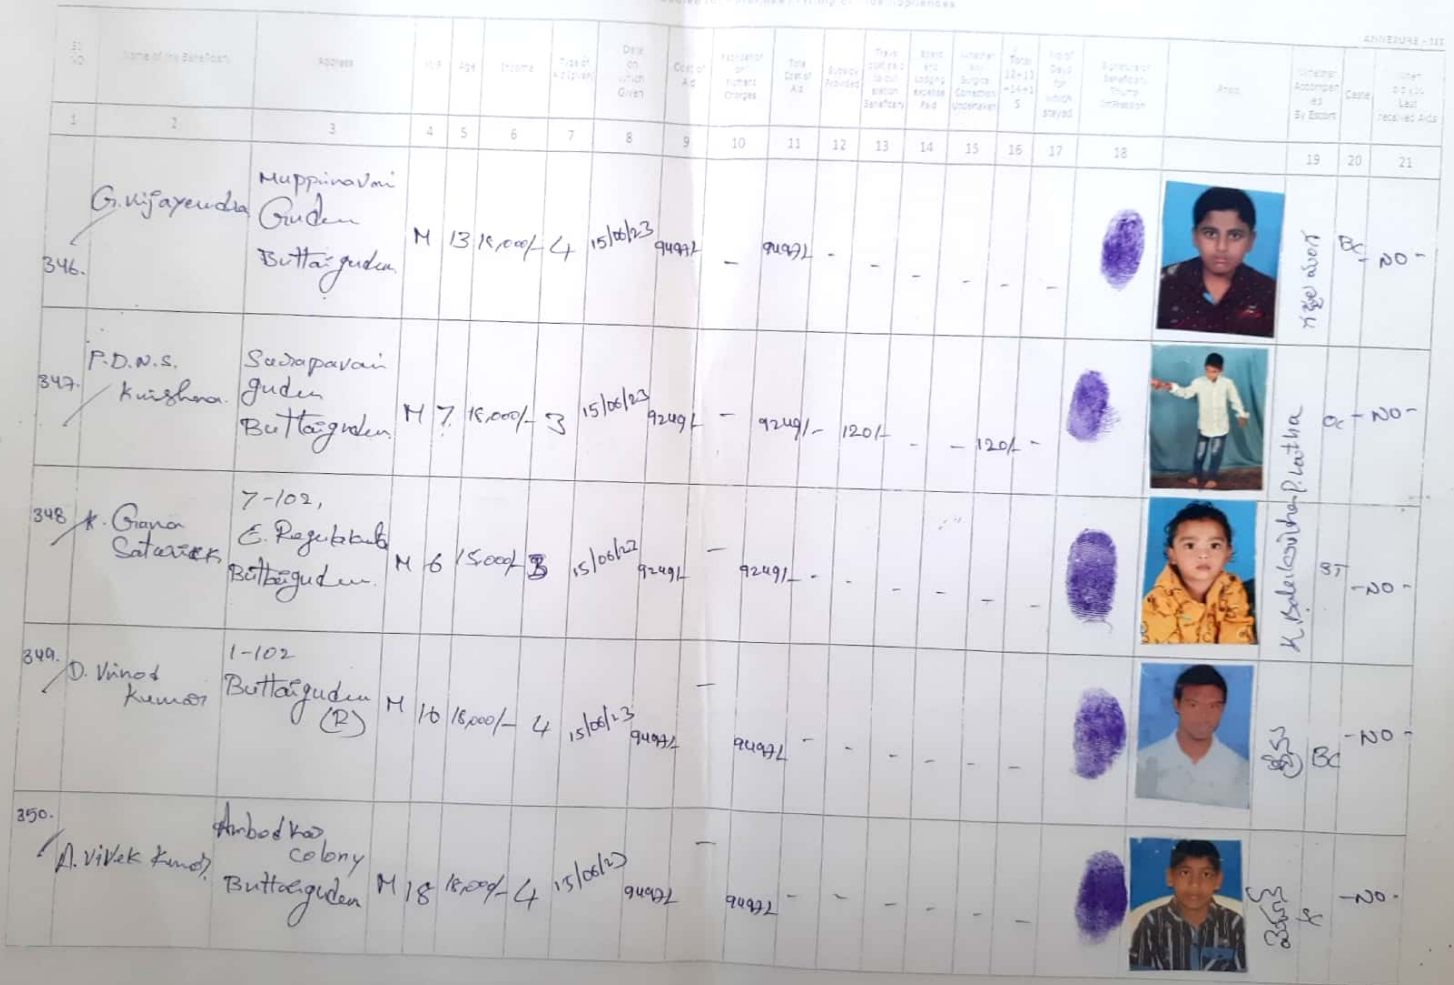 ANNEXURE - III
Sl. NO
Name of the Beneficiary
Address
Age
Income
Type of Aid (given)
Date on which Given
Cost of Aid
Total Cost of Aid
Subsidy Provided
Board and Lodging expense Paid
Whether any Surgical Correction Undertaken
Total 12+13 +14+1 5
No of Days for which stayed
Signature of Beneficiary Thump Impression
Photo
Whether Accompanied By Escort
Caste
1 2 3 4 5 6 7 8 9 10 11 12 13 14 15 16 17 18 19 20 21
346. G. Vijayendra Muppinavari Gudem Buttaigudem M 13 18,000/- 4 15/06/23 9497/- - 9497/- - - - - - - BC - NO -
347. P.D.N.S. Krishna. Sarapavari gudem Buttaigudem M 7 18,000/- 3 15/06/23 9249/- - 9249/- - 120/- - - 120/- - P. Latha OC - NO -
348 K. Gana Satwick 7-102, E. Regulakunta Buttaigudem. M 6 15,000/- 3 15/06/22 9249/- - 9249/- - - - - - - ST - NO -
349. D. Vinod Kumar 1-102 Buttaigudem (R) M 16 18,000/- 4 15/06/23 9497/- - 9497/- - - - - - - BC - NO -
350. A. Vivek Kumar. Ambedkar colony Buttaigudem M 18 18,000/- 4 15/06/23 9497/- - 9497/- - - - - - - SC - NO -